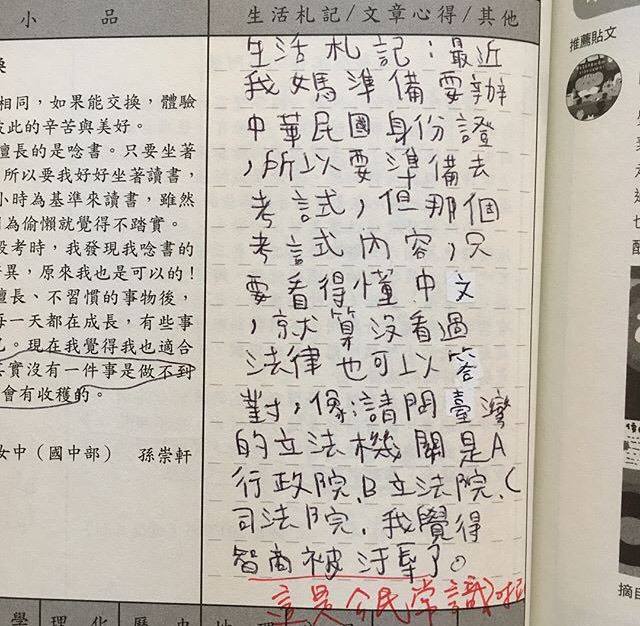 小品
生活札記/文章心得/其他
相同，如果能交換，體驗
彼此的辛苦與美好。
擅長的是唸書。只要坐著
，所以要我好好坐著讀書，
小時為基準來讀書，雖然
因為偷懶就覺得不踏實。
段考時，我發現我唸書的
異，原來我也是可以的！
擅長、不習慣的事物後，
每一天都在成長，有些事
。現在我覺得我也適合
其實沒有一件事是做不到
會有收穫的。
女中（國中部） 孫崇軒
生活札記：最近
我媽準備要辦
中華民國身份證
，所以要準備去
考試，但那個
考試內容，只
要看得懂中文
，就算沒看過
法律也可以答
對，像：請問臺灣
的立法機關是A
行政院、B立法院、C
司法院，我覺得
智商被汙辱了。
這是公民常識啦
推薦貼文
學理化歷史地理
摘自